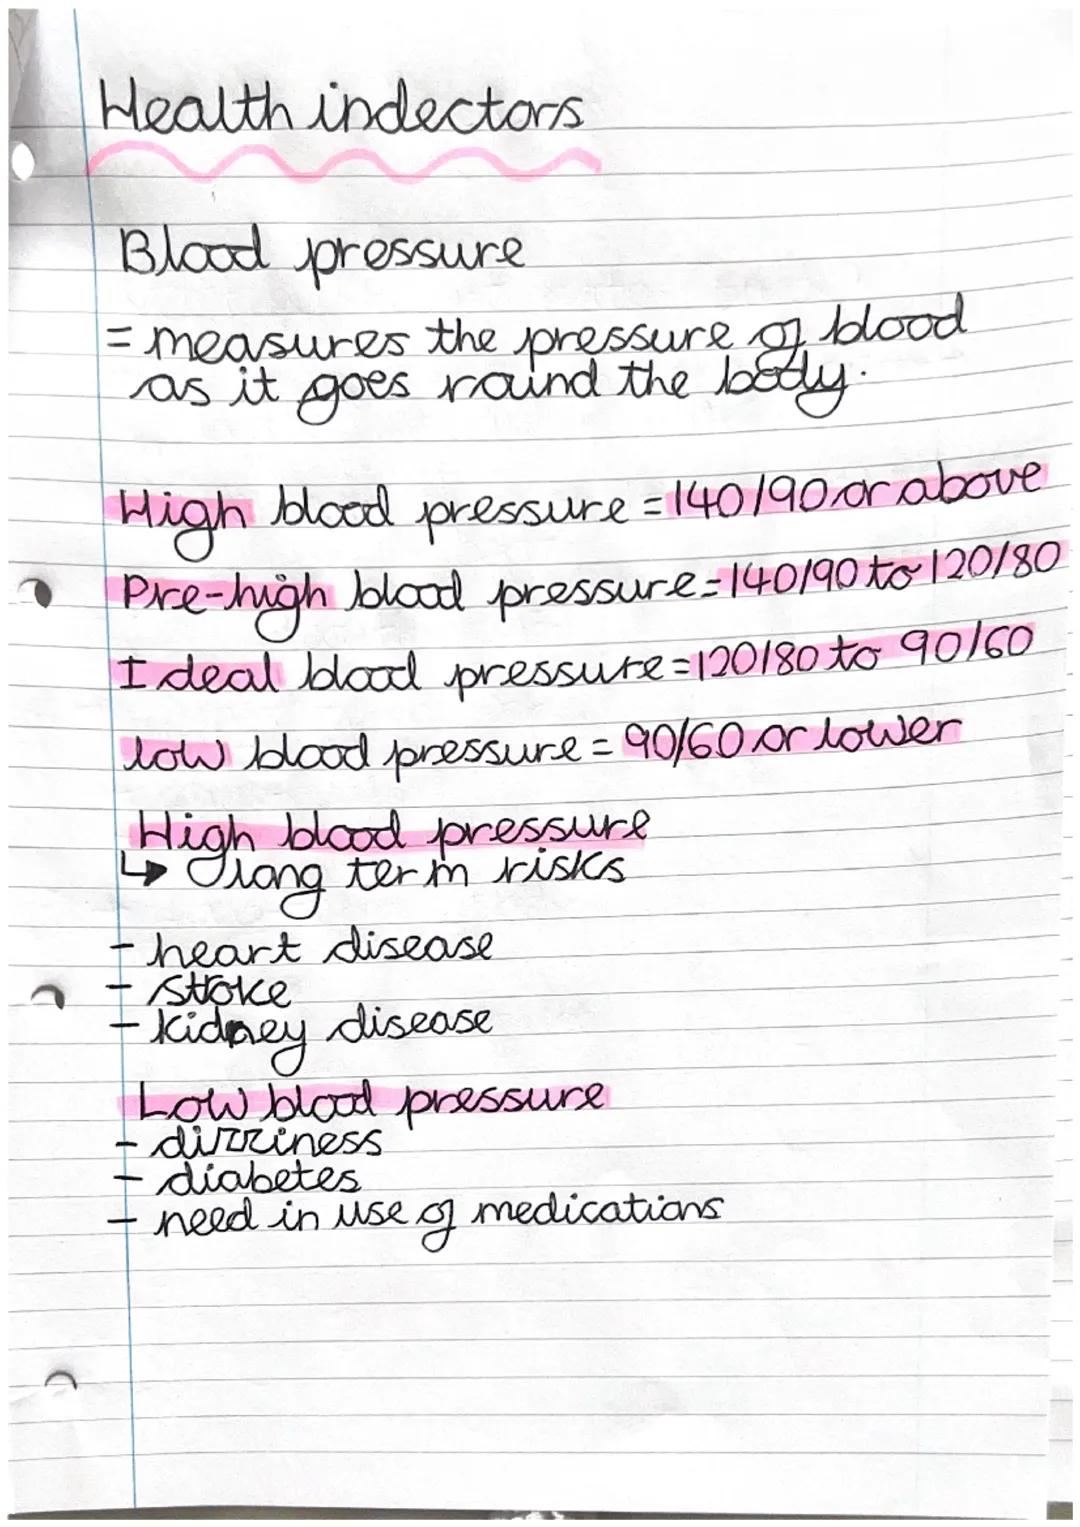 Health indectors
Blood pressure
= measures the pressure of blood
as it goes round the body.
High blood pressure = 140/90 or above
Pre-high blood pressure = 140/90 to 120/80
Ideal blood pressure = 120/80 to 90/60
low blood pressure = 90/60 or lower
High blood pressure
↳ long term risks
- heart disease
- stoke
- kidney disease
Low blood pressure
- dizziness
- diabetes
- need in use of medications